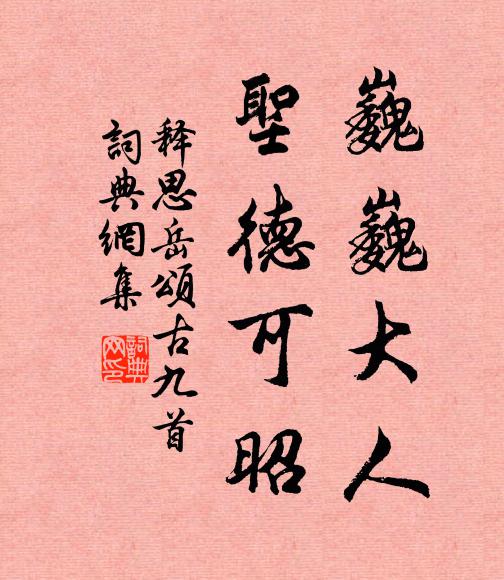 巍巍大人
聖德可昭
释思岳頌古九首
詞典網集
詞典
网印